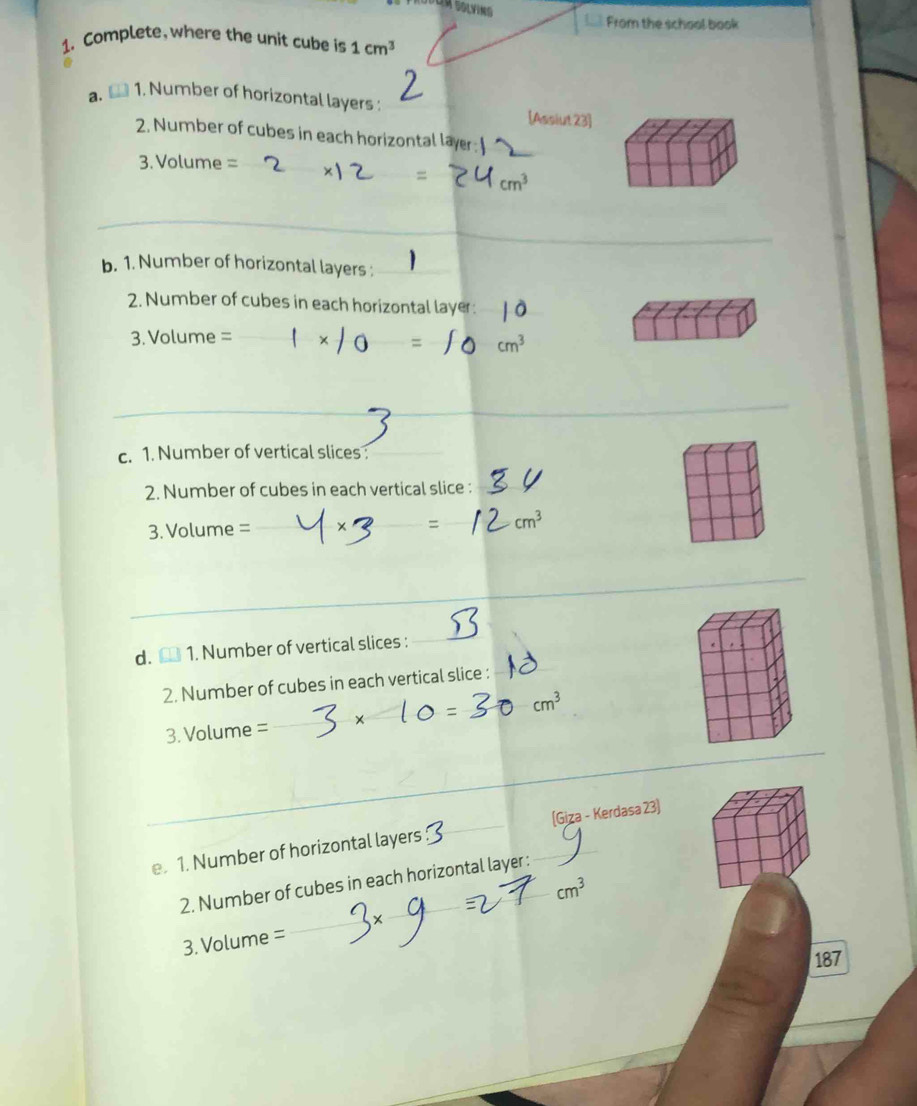 SOLVING
From the school book
1. Complete, where the unit cube is 1 cm³
a. 1. Number of horizontal layers : 2
[Assiut 23]
2. Number of cubes in each horizontal layer : 12
3. Volume = 2 × 12 = 24 cm³
b. 1. Number of horizontal layers : 1
2. Number of cubes in each horizontal layer : 10
3. Volume = 1 × 10 = 10 cm³
c. 1. Number of vertical slices : 3
2. Number of cubes in each vertical slice : 4
3. Volume = 4 × 3 = 12 cm³
d. 1. Number of vertical slices : 3
2. Number of cubes in each vertical slice : 10
3. Volume = 3 × 10 = 30 cm³
[Giza - Kerdasa 23]
e. 1. Number of horizontal layers : 3
2. Number of cubes in each horizontal layer : 9
3. Volume = 3 × 9 = 27 cm³
187